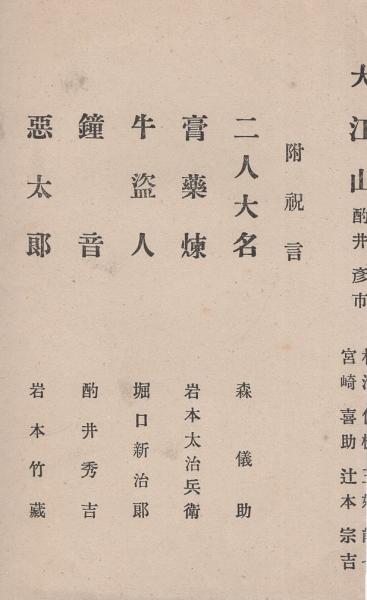 大江山
酌井彦市
宮崎喜助 辻本宗吉
附祝言
二人大名 森儀助
膏藥煉 岩本太治兵衛
牛盜人 堀口新治郎
鐘音 酌井秀吉
惡太郎 岩本竹藏